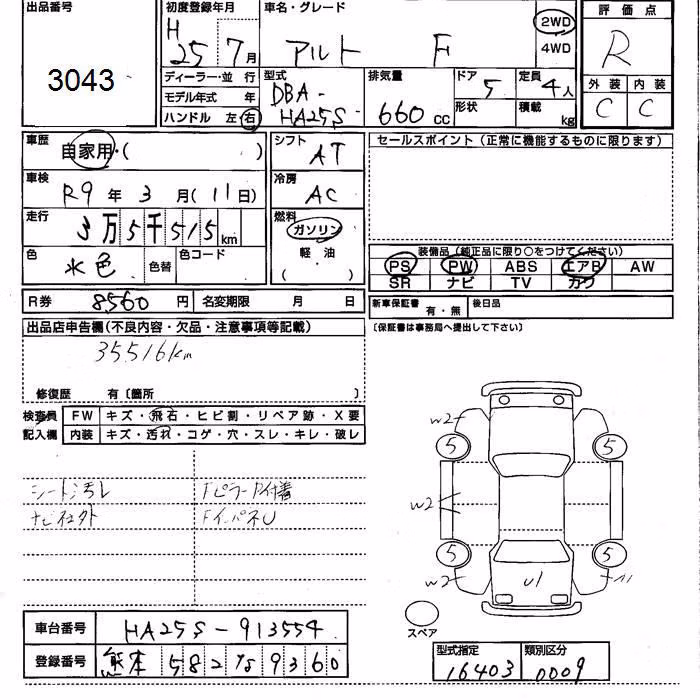 出品番号
3043
初度登録年月
H 25 7月
車名・グレード
アルト F
2WD
4WD
評価点
R
ディーラー・並 行
モデル年式 年
ハンドル 左・右
型式
DBA-
HA25S
排気量
660cc
ドア 5
形状
定員 4人
積載 kg
外装 内装
C C
車歴
自家用・( )
車検
R9年 3月(11日)
走行
3万5千515km
色
水色
色替
色コード
シフト
AT
冷房
AC
燃料
ガソリン
軽油
( )
セールスポイント(正常に機能するものに限ります)
装備品(純正品に限り○をつけてください)
PS PW ABS エアB AW
SR ナビ TV カワ
R券 8560円 名変期限 月 日
新車保証書 有・無 後日品
〔保証書は事務局へ提出して下さい〕
出品店申告欄(不良内容・欠品・注意事項等記載)
35516km
修復歴 有〔箇所 〕
検査員
記入欄
FW キズ・飛石・ヒビ割・リペア跡・X要
内装 キズ・汚れ・コゲ・穴・スレ・キレ・破レ
シート汚レ
Fピラー
ナビ
FインパネU
W2
5 5
W2
5 5
W2
U1
スペア
車台番号 HA25S-913554
登録番号 熊本 582 9360
型式指定
16403
類別区分
0009